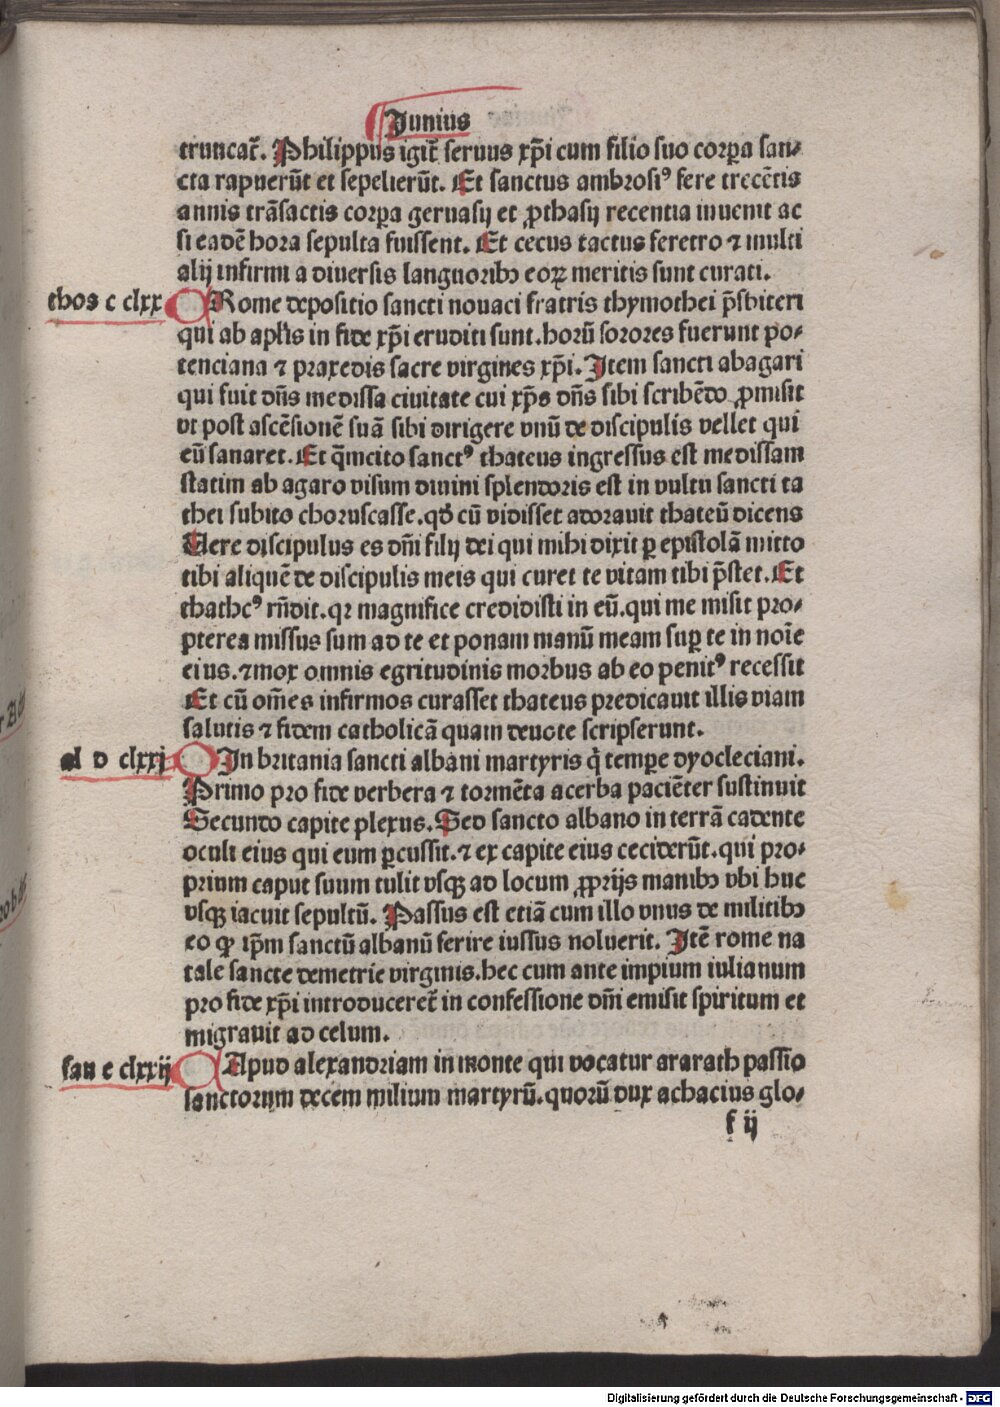 Junius
truncat᷑. Philippus igit᷑ seruus xp̄i cum filio suo corꝑa san⸗
cta rapuerūt et sepelierūt. Et sanctus ambrosiꝰ fere trecētis
annis trāsactis corꝑa geruasij et ꝓthasij recentia inuenit ac
si eadē hora sepulta fuissent. Et cecus tactus feretro ⁊ multi
alij infirmi a diuersis languoribꝫ eoꝝ meritis sunt curati.
thos c clxx Rome depositio sancti nouaci fratris thymothei p̄sbiteri
qui ab apl̓is in fide xp̄i eruditi sunt. horū sorores fuerunt po⸗
tenciana ⁊ praxedis sacre virgines xp̄i. Item sancti abagari
qui fuit dn̄s medissa ciuitate cui xp̄s dn̄s sibi scribēdo ꝓmisit
vt post ascēsionē suā sibi dirigere vnū de discipulis vellet qui
eū sanaret. Et q̄mcito sanctꝰ thateus ingressus est medissam
statim ab agaro visum diuini splendoris est in vultu sancti ta
thei subito choruscasse. qd̓ cū vidisset adorauit thateū dicens
Vere discipulus es dn̄i filij dei qui mihi dixit ꝑ epistolā mitto
tibi aliquē de discipulis meis qui curet te vitam tibi p̄stet. Et
thathcꝰ rn̄dit. qr magnifice credidisti in eū. qui me misit pro⸗
pterea missus sum ad te et ponam manū meam suꝑ te in noīe
eius. ⁊ mox omnis egritudinis morbus ab eo penitꝰ recessit
Et cū om̄es infirmos curasset thateus predicauit illis viam
salutis ⁊ fidem catholicā quam deuote scripserunt.
al d clxxj In britania sancti albani martyris q̇ temꝑe dyocleciani.
Primo pro fide verbera ⁊ tormēta acerba paciēter sustinuit
Secundo capite plexus. Sed sancto albano in terrā cadente
oculi eius qui eum ꝑcussit. ⁊ ex capite eius ceciderūt. qui pro⸗
prium caput suum tulit vsqꝫ ad locum ꝓprijs manibꝫ vbi huc
vsqꝫ iacuit sepultū. Passus est etiā cum illo vnus de militibꝫ
eo ꝙ ip̄m sanctū albanū ferire iussus noluerit. Itē rome na
tale sancte demetrie virginis. hec cum ante impium iulianum
pro fide xp̄i introduceret᷑ in confessione dn̄i emisit spiritum et
migrauit ad celum.
san e clxxij Apud alexandriam in monte qui vocatur ararath passio
sanctorum decem milium martyrū. quorū dux achacius glo⸗
f ij
Digitalisierung gefördert durch die Deutsche Forschungsgemeinschaft - DFG